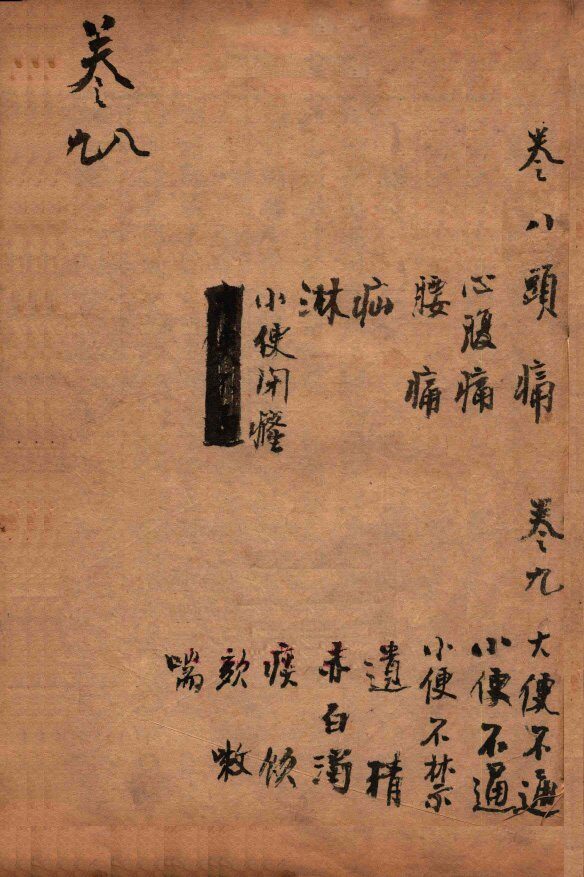 卷八
頭痛
心腹痛
腰痛
疝
淋
小便閉癃
卷九
大便不通
小便不通
小便不禁
遺精
赤白濁
痰飲
欬嗽
喘
卷
八
九